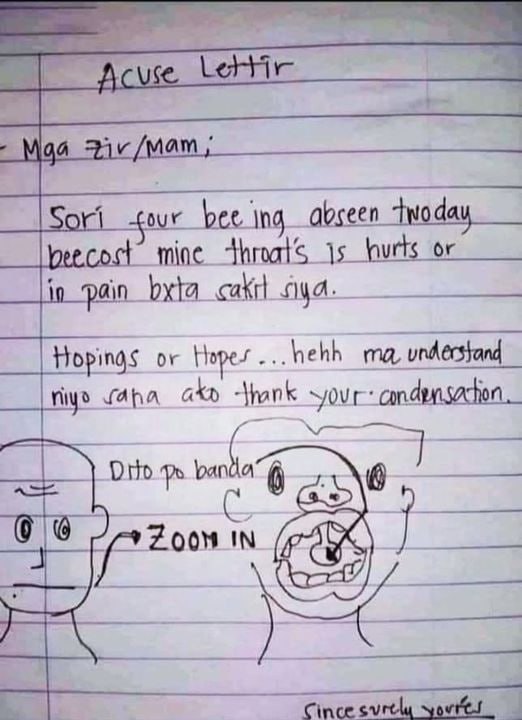 Acuse Lettir
- Mga zir/Mam;
Sori four bee ing abseen twoday
beecost mine throat's is hurts or
in pain bxta sakit siya.
Hopings or Hopes...hehh ma understand
niyo sana ako thank your condensation.
Dito po banda
ZOOM IN
Sincesurely yourfes